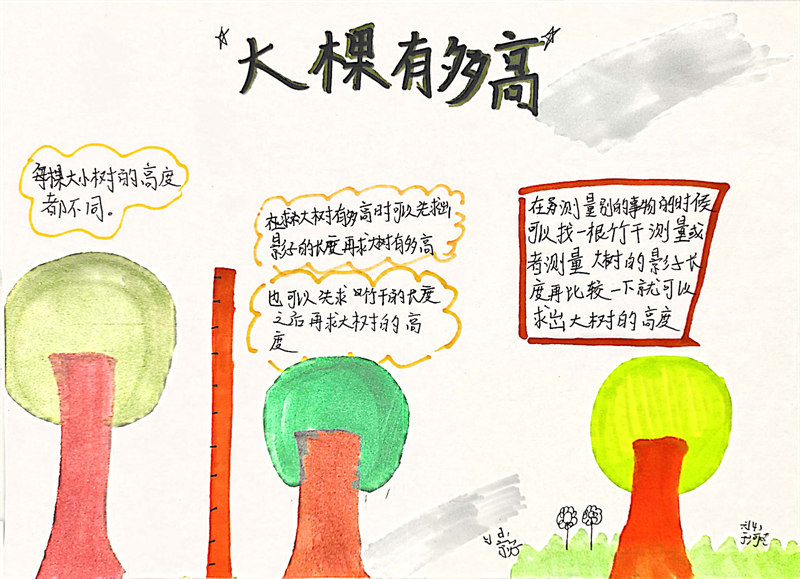 大棵有多高
每棵大小树的高度
都不同。
在求大树有多高时可以先求出
影子的长度再求大树有多高
也可以先求出竹干的长度
之后再求大树的高
度
在为测量别的事物的时候
可以找一根竹干测量或
者测量大树的影子长
度再比较一下就可以
求出大树的高度